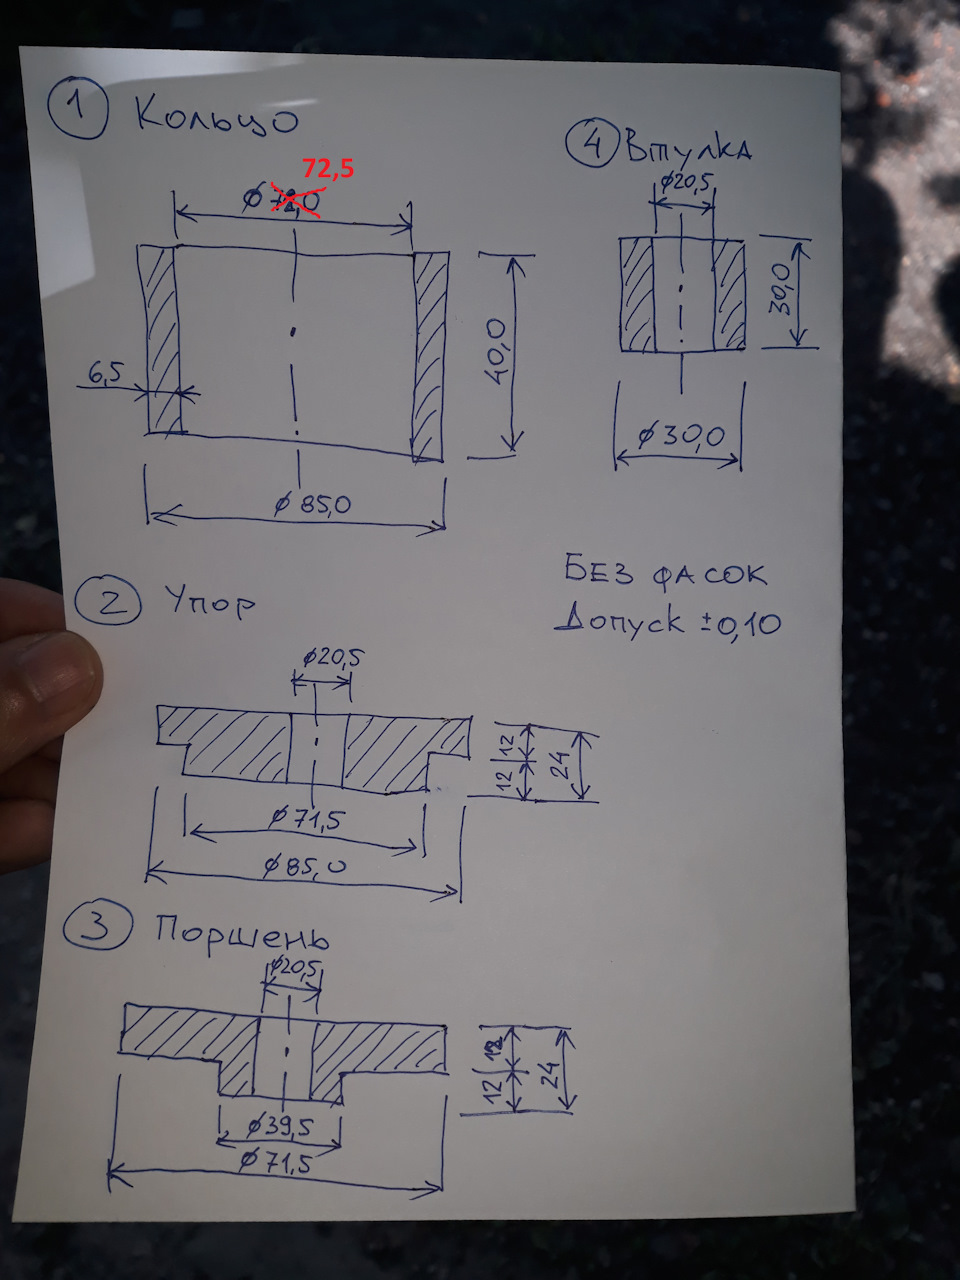 1 Кольцо
72,5
⌀72,0
6,5
40,0
⌀85,0
4 Втулка
⌀20,5
30,0
⌀30,0
БЕЗ ФАСОК
Допуск ±0,10
2 Упор
⌀20,5
12
12
24
⌀71,5
⌀85,0
3 Поршень
⌀20,5
12
12
24
⌀39,5
⌀71,5